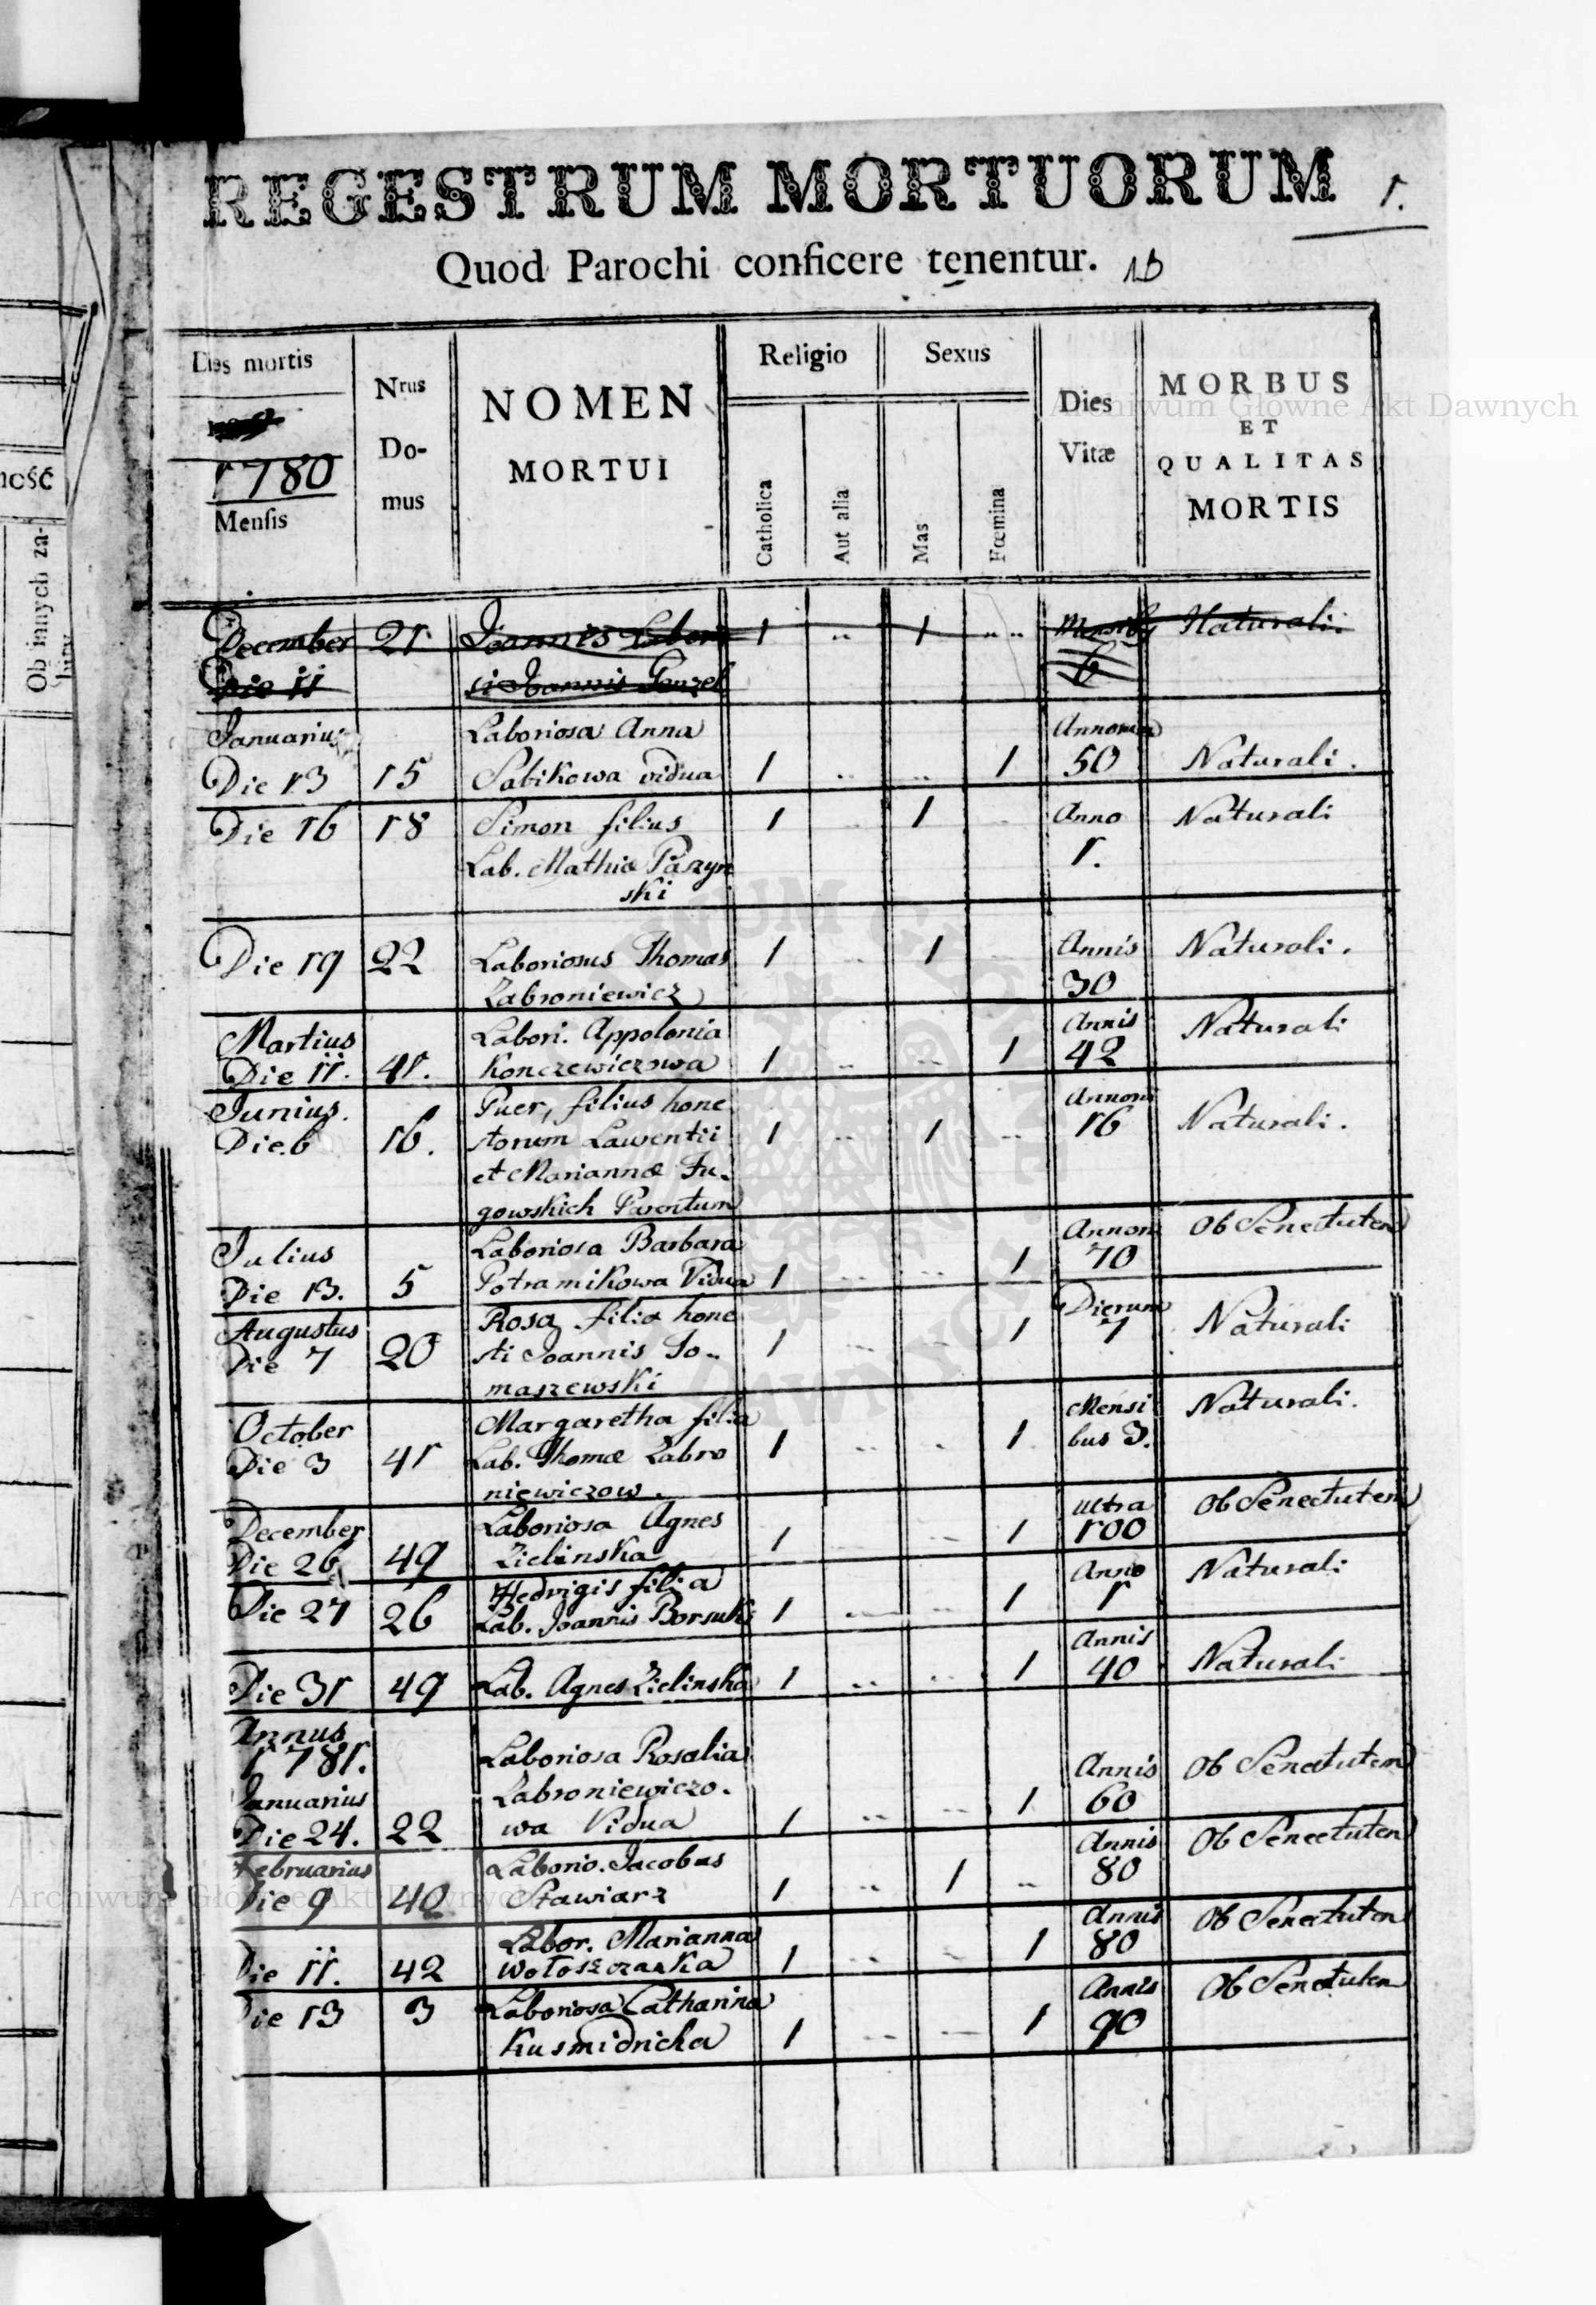 REGESTRUM MORTUORUM 1.
Quod Parochi conficere tenentur. 1b
Dies mortis
1780
Mensis
Nrus
Do-
mus
NOMEN
MORTUI
Religio
Catholica
Aut alia
Sexus
Mas
Fœmina
Dies
Vitæ
MORBUS
ET
QUALITAS
MORTIS
ność
Ob innych za-
December 21 Joannes Labori 1 .. 1 .. .. Mensiby Naturali.
Die 11 si Joannis 6
Januarius Laboriosa Anna Annorum
Die 13 15 Sabikowa vidua 1 .. .. 1 50 Naturali.
Die 16 18 Simon filius 1 .. 1 .. Anno Naturali
Lab. Mathiæ Paszyn 1.
ski
Die 19 22 Laboriosus Thomas 1 .. 1 .. Annis Naturali.
Zabroniewicz 30
Martius Labori. Appolonia Annis Naturali
Die 11. 41. Konczewiczowa 1 .. .. 1 42
Junius. Puer, filius hone Annoru
Die 6 16. storum Laurentii 1 .. 1 .. 16 Naturali.
et Mariannæ Fu-
gowskich Parentum
Julius Laboriosa Barbara Annoru Ob Senectutem
Die 13. 5 Potramikowa Vidua 1 .. .. 1 70
Augustus Rosa filia hone Dierum
Die 7 20 sti Joannis To- 1 .. .. 1 7 Naturali
maszewski
October Margaretha filia Mensi Naturali.
Die 3 41 Lab. Thomæ Zabro 1 .. . 1 bus 3.
niewiczow.
December Laboriosa Agnes ultra Ob Senectutem
Die 26 49 Zielinska 1 .. 1 100
Die 27 26 Hedvigis filia Anno Naturali
Lab. Joannis Borsuki 1 .. .. 1 1
Annis
Die 31 49 Lab. Agnes Zielinska 1 .. .. 1 40 Naturali
Annus
1781. Laboriosa Rosalia
Januarius Zabroniewiczo- Annis Ob Senectutem
Die 24. 22 wa Vidua 1 .. .. 1 60
Februarius Laborio. Jacobus Annis Ob Senectutem
Die 9 40 Stawiarz 1 .. 1 .. 80
Labor. Marianna Annis Ob Senectutem
Die 11. 42 Wołoszczanka 1 .. .. 1 80
Die 13 3 Laboriosa Catharina Annis Ob Senectutem
Kusmidricka 1 .. .. 1 90
Archiwum Główne Akt Dawnych
Archiwum Główne Akt Dawnych